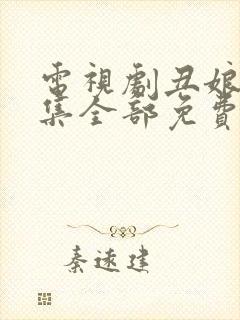 電視劇丑娘
集全部免費
秦遠建